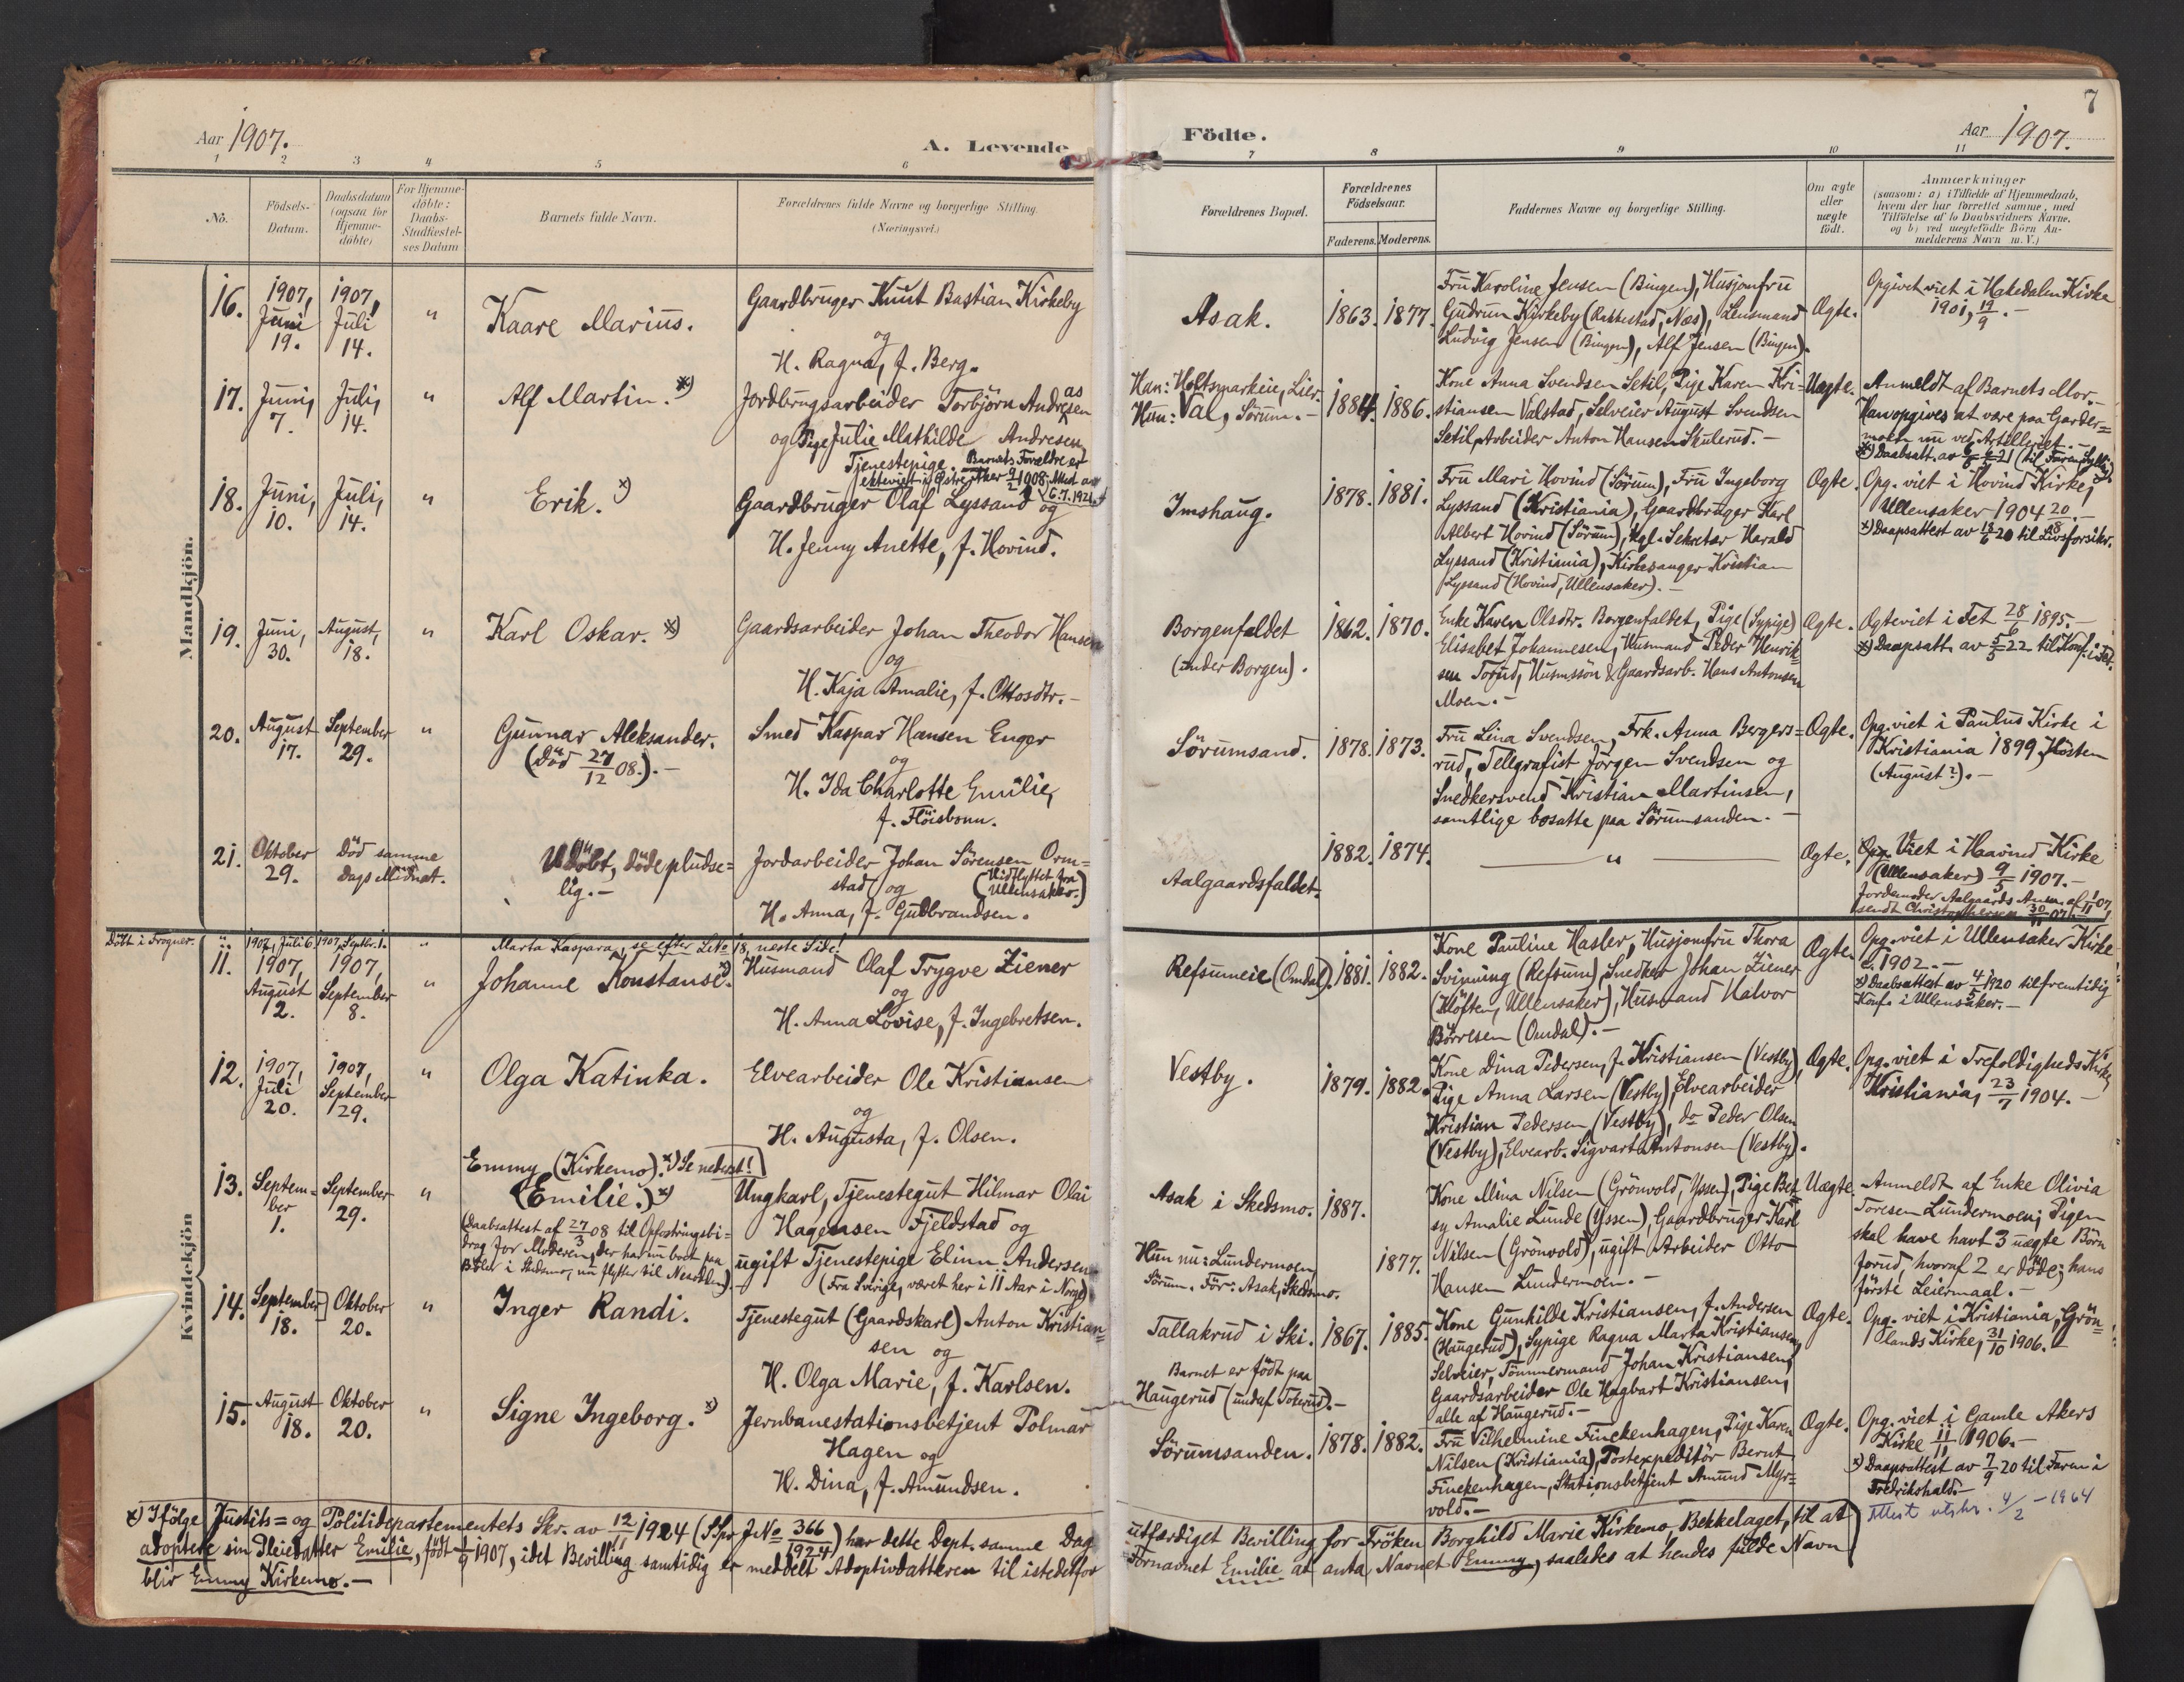 Aar 1907.
A. Levende
1 2 3 4 5 6
No.
Födsels-Datum.
Daabsdatum (ogsaa for Hjemme-döbte)
For Hjemme-döbte: Daabs-Stadfæstel-ses Datum
Barnets fulde Navn.
Forældrenes fulde Navne og borgerlige Stilling.
(Næringsvei.)
Mandkjön.
16. 1907, Juni 19. 1907, Juli 14. " Kaare Marius. Gaardbruger Knut Bastian Kirkeby
og
H. Ragna, f. Berg.
17. Juni, 7. Juli, 14. " Alf Martin. x) Jordbrugsarbeider Torbjörn Andresen
as
og Pige Julie Mathilde Andresen,
Tjenestepige. Barnets Forældre er
ekteviet i Østre Aker 9/2 1908.
18. Juni, 10. Juli, 14. " Erik. x) Gaardbruger Olaf Lyssand og
H. Jenny Anette, f. Hovind.
19. Juni, 30. August, 18. " Karl Oskar. x) Gaardsarbeider Johan Theodor Hansen
og
H. Kaja Amalie, f. Ottosdtr. -
20. August 17. September 29. " Gunnar Aleksander. Smed Kaspar Hansen Enger
(Död 27/12 08.). - og
H. Ida Charlotte Emilie,
f. Flöisbonn.
21. Oktober 29. Död samme Dags Midnat. Udöbt, döde pludse= Jordarbeider Johan Sörensen Orm=
lig. - stad og (Hidflyttet fra Ullensaker.)
H. Anna, f. Gudbrandsen.
Döbt i Frogner. 1907, Juli 6. 1907, Septbr. 1. " Marta Kaspara, se efter No 18, neste Side!
Kvindekjön
11. 1907, August 2. 1907, September 8. " Johanne Konstanse. x) Husmand Olaf Trygve Ziener
og
H. Anna Lovise, f. Ingebretsen.
12. 1907, Juli 20. 1907, September 29. " Olga Katinka. Elvearbeider Ole Kristiansen
og
H. Augusta, f. Olsen.
Emmy (Kirkemo). x) Se nederst!
13. Septem=ber 1. September 29. " (Emilie.) x) Ungkarl, Tjenestegut Hilmar Olai
Hagensen Fjeldstad og
(Daabsattest af 27/3 08 til Opfostringsbi=
drag for Moderen, der har nu boet paa
Böler i Skedsmo, nu flytter til Nesodden).
ugift Tjenestepige Elina Andersen
(Fra Sverige, været her i 11 Aar i Norge)
14. September 18. Oktober 20. " Inger Randi. Tjenestegut (Gaardskarl) Anton Kristian=
sen og
H. Olga Marie, f. Karlsen.
15. August 18. Oktober 20. " Signe Ingeborg. x) Jernbanestationsbetjent Polmar
Hagen og
H. Dina, f. Amundsen.
x) Ifölge Justits= og Politidepartementets Skr. av 12/11 1924 (JNo 366/1924) har dette Dept. samme Dag
adoptere sin Pleiedatter Emilie, født 1/9 1907, idet Bevilling samtidig er meddelt Adoptivdatteren til istedetfor
blir Emmy Kirkemo. -
Födte.
Aar 1907.
7
7 8 9 10 11
Forældrenes Bopæl.
Forældrenes Födselsaar.
Faderens. Moderens.
Faddernes Navne og borgerlige Stilling.
Om ægte eller uægte födt.
Anmærkninger
(saasom: a) i Tilfælde af Hjemmedaab,
hvem der har forrettet samme, med
Tilföielse af to Daabsvidners Navne,
og b) ved uægtefödte Börn An-
melderens Navn m. V.)
Asak. 1863. 1877.
Fru Karoline Jensen (Bingen), Husjomfru
Gudrun Kirkeby (Rakkestad, Næs), Lensmand
Ludvig Jensen (Bingen), Alf Jensen (Bingen).
Ægte.
Opgivet viet i Hakedalen Kirke
1901, 19/9. -
Han: Holtsmarkeie, Lier.
Hun: Val, Sörum. -
1884. 1886.
Kone Anna Svendsen Setil, Pige Karen Kri=
stiansen Valstad, Selveier August Svendsen
Setil, Arbeider Anton Hansen Skulerud. -
Uægte.
Anmeldt af Barnets Mor. -
Han opgives at være paa Garder=
moen nu ved Artilleriet. -
Imshaug. 1878. 1881.
Fru Mari Hovind (Sörum), Fru Ingeborg
Lyssand (Kristiania), Gaardbruger Karl
Albert Hovind (Sörum), Kgl. Sekretær Harald
Lyssand (Kristiania), Kirkesanger Kristian
Lyssand (Hovind, Ullensaker). -
Ægte.
Opg. viet i Hovind Kirke,
Ullensaker 1904 20/8. -
x) Daapsattest av 18/6 20 til Livsforsikr.
Borgenfaldet
(under Borgen).
1862. 1870.
Enke Karen Olsdtr. Borgenfaldet, Pige (Sypige)
Elisabet Johannesen, Husmand Peder Henrik=
sen Torud, Husmssön & Gaardsarb. Hans Antonsen
Moen. -
Ægte.
Ægteviet i Fet 28/6 1895. -
x) Daapsatt. av 5/5 22 til Konf. i Fet.
Sörumsand. 1878. 1873.
Fru Lina Svendsen, Frk. Anna Bergers=
rud, Tellgrafist Jörgen Svendsen og
Snedkersvend Kristian Martinsen,
samtlige bosatte paa Sörumsanden. -
Ægte.
Opg. viet i Paulus Kirke i
Kristiania 1899, Hösten
(August?). -
Aalgaardsfaldet. 1882. 1874. " Ægte.
Viet i Haavind Kirke
(Ullensaker) 9/5 1907. -
Refsumeie (Omdal). 1881. 1882.
Kone Pauline Hasler, Husjomfru Thora
Svinning (Refsum), Snedker Johan Ziener
(Klöften, Ullensaker), Husmand Halvor
Börresen (Omdal). -
Ægte.
Opg. viet i Ullensaker Kirke
c. 1902. -
x) Daabsattest av 4/5 1920 til fremtidig
Konf. i Ullensaker. -
Vestby. 1879. 1882.
Kone Dina Pedersen, f. Kristiansen (Vestby),
Pige Anna Larsen (Vestby), Elvearbeider
Kristian Pedersen (Vestby), do Peder Olsen
(Vestby), Elvearb. Sigvart Antonsen (Vestby).
Ægte.
Opg. viet i Trefoldigheds Kirke,
Kristiania, 23/7 1904. -
Asak i Skedsmo. 1887.
Hun nu: Lundermoen,
Sörum. Förr: Asak, Skedsmo.
1877.
Kone Mina Nilsen (Grönvold, Yssen), Pige Bet=
sy Amalie Lunde (Yssen), Gaardbruger Karl
Nilsen (Grönvold), ugift Arbeider Otto
Hansen Lundermoen. -
Uægte.
Anmeldt af Enke Olivia
Toresen Lundermoen; Pigen
skal have havt 3 uægte Börn
forud, hvoraf 2 er döde; hans
förste Leiermaal. -
Tallakrud i Ski. 1867. 1885.
Barnet er födt paa
Haugerud
Kone Gunhilde Kristiansen, f. Andersen
(Haugerud), Sypige Ragna Marta Kristiansen,
Selveier, Tömmermand Johan Kristiansen,
Gaardsarbeider Ole Hagbart Kristiansen,
alle af Haugerud. -
Ægte.
Opg. viet i Kristiania, Grön=
lands Kirke, 31/10 1906. -
Sörumsanden. 1878. 1882.
Fru Vilhelmine Finckenhagen, Pige Karen
Nilsen (Kristiania), Postexpeditör Bernt
Finckenhagen, Stationsbetjent Amund Myr=
vold. -
Ægte.
Opg. viet i Gamle Akers
Kirke 11/11 1906. -
x) Daapsattest av 7/9 20 til Faren i
Fredrikshald. -
Attest utskr. 4/2 - 1964
utfærdiget Bevilling for Fröken Borghild Marie Kirkemo, Bekkelaget, til at
Fornavnet Emilie at anta Navnet Emmy, saaledes at hendes fulde Navn